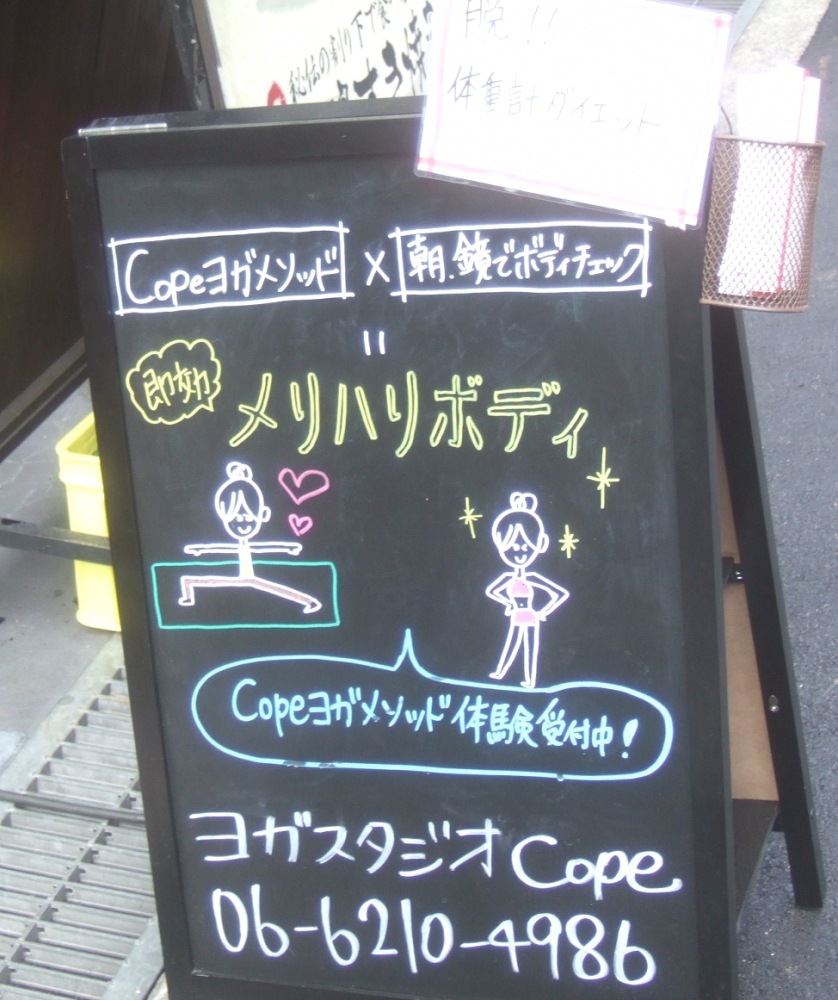 秘伝の割り下で
脱!!
体重計ダイエット
Copeヨガメソッド × 朝、鏡でボディチェック
=
即効
メリハリボディ
Copeヨガメソッド体験受付中!
ヨガスタジオCope
06-6210-4986